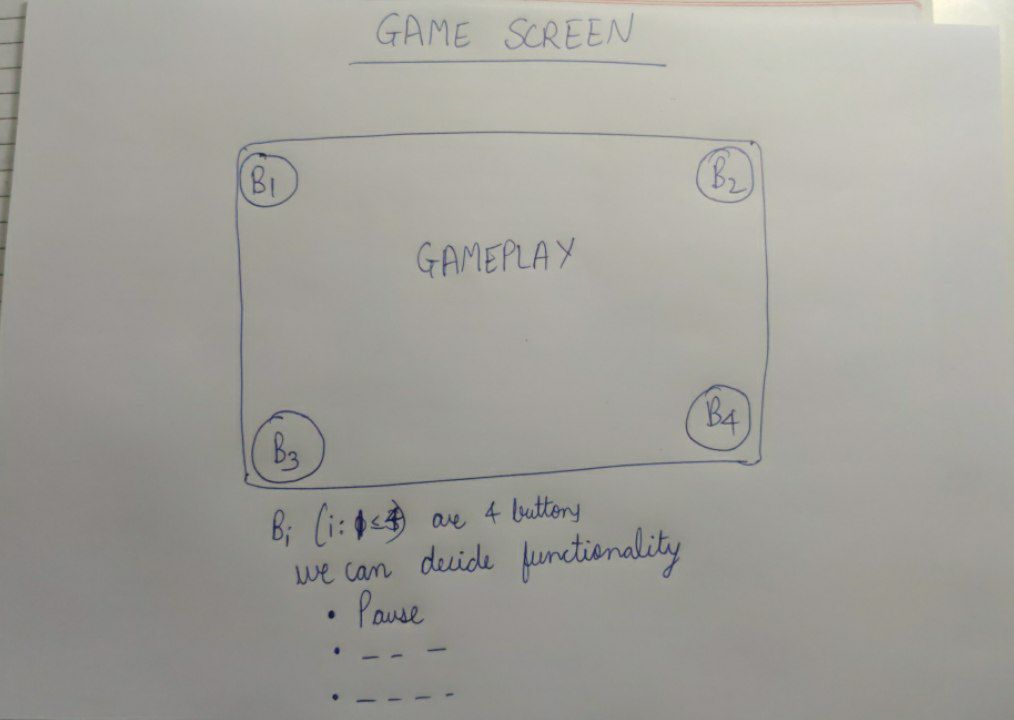 GAME SCREEN
B1 B2
GAMEPLAY
B3 B4
Bi (i: 1≤4) are 4 buttons
we can decide functionality
• Pause
• _ _ _
• _ _ _ _